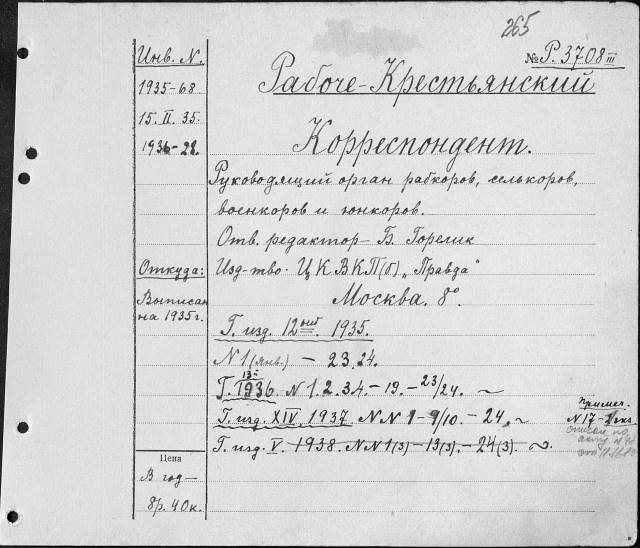 265
№ Р. 3708 III
Инв. N.
1935-68
15. II. 35.
1936-28.
Рабоче-Крестьянский
Корреспондент.
Руководящий орган рабкоров, селькоров,
военкоров и юнкоров.
Отв. редактор - Б. Горелик
Изд-тво. ЦК ВКП(б) „Правда“
Москва. 8º.
Откуда:
Выписан
на 1935 г.
Г. изд. 12ый 1935.
N 1 (янв.) - 23.24.
13й
Г. 1936. N 1. 2. 3.4. - 19. - 23/24. ~
Г. изд. XIV. 1937 N N 1 - 9/10. - 24, ~
Г. изд. V. 1938. N N 1(3) - 13(3). - 24(3). ~
Примеч.
N 17 - экз.
списан по
акту
Цена
В год -
8р. 40к.